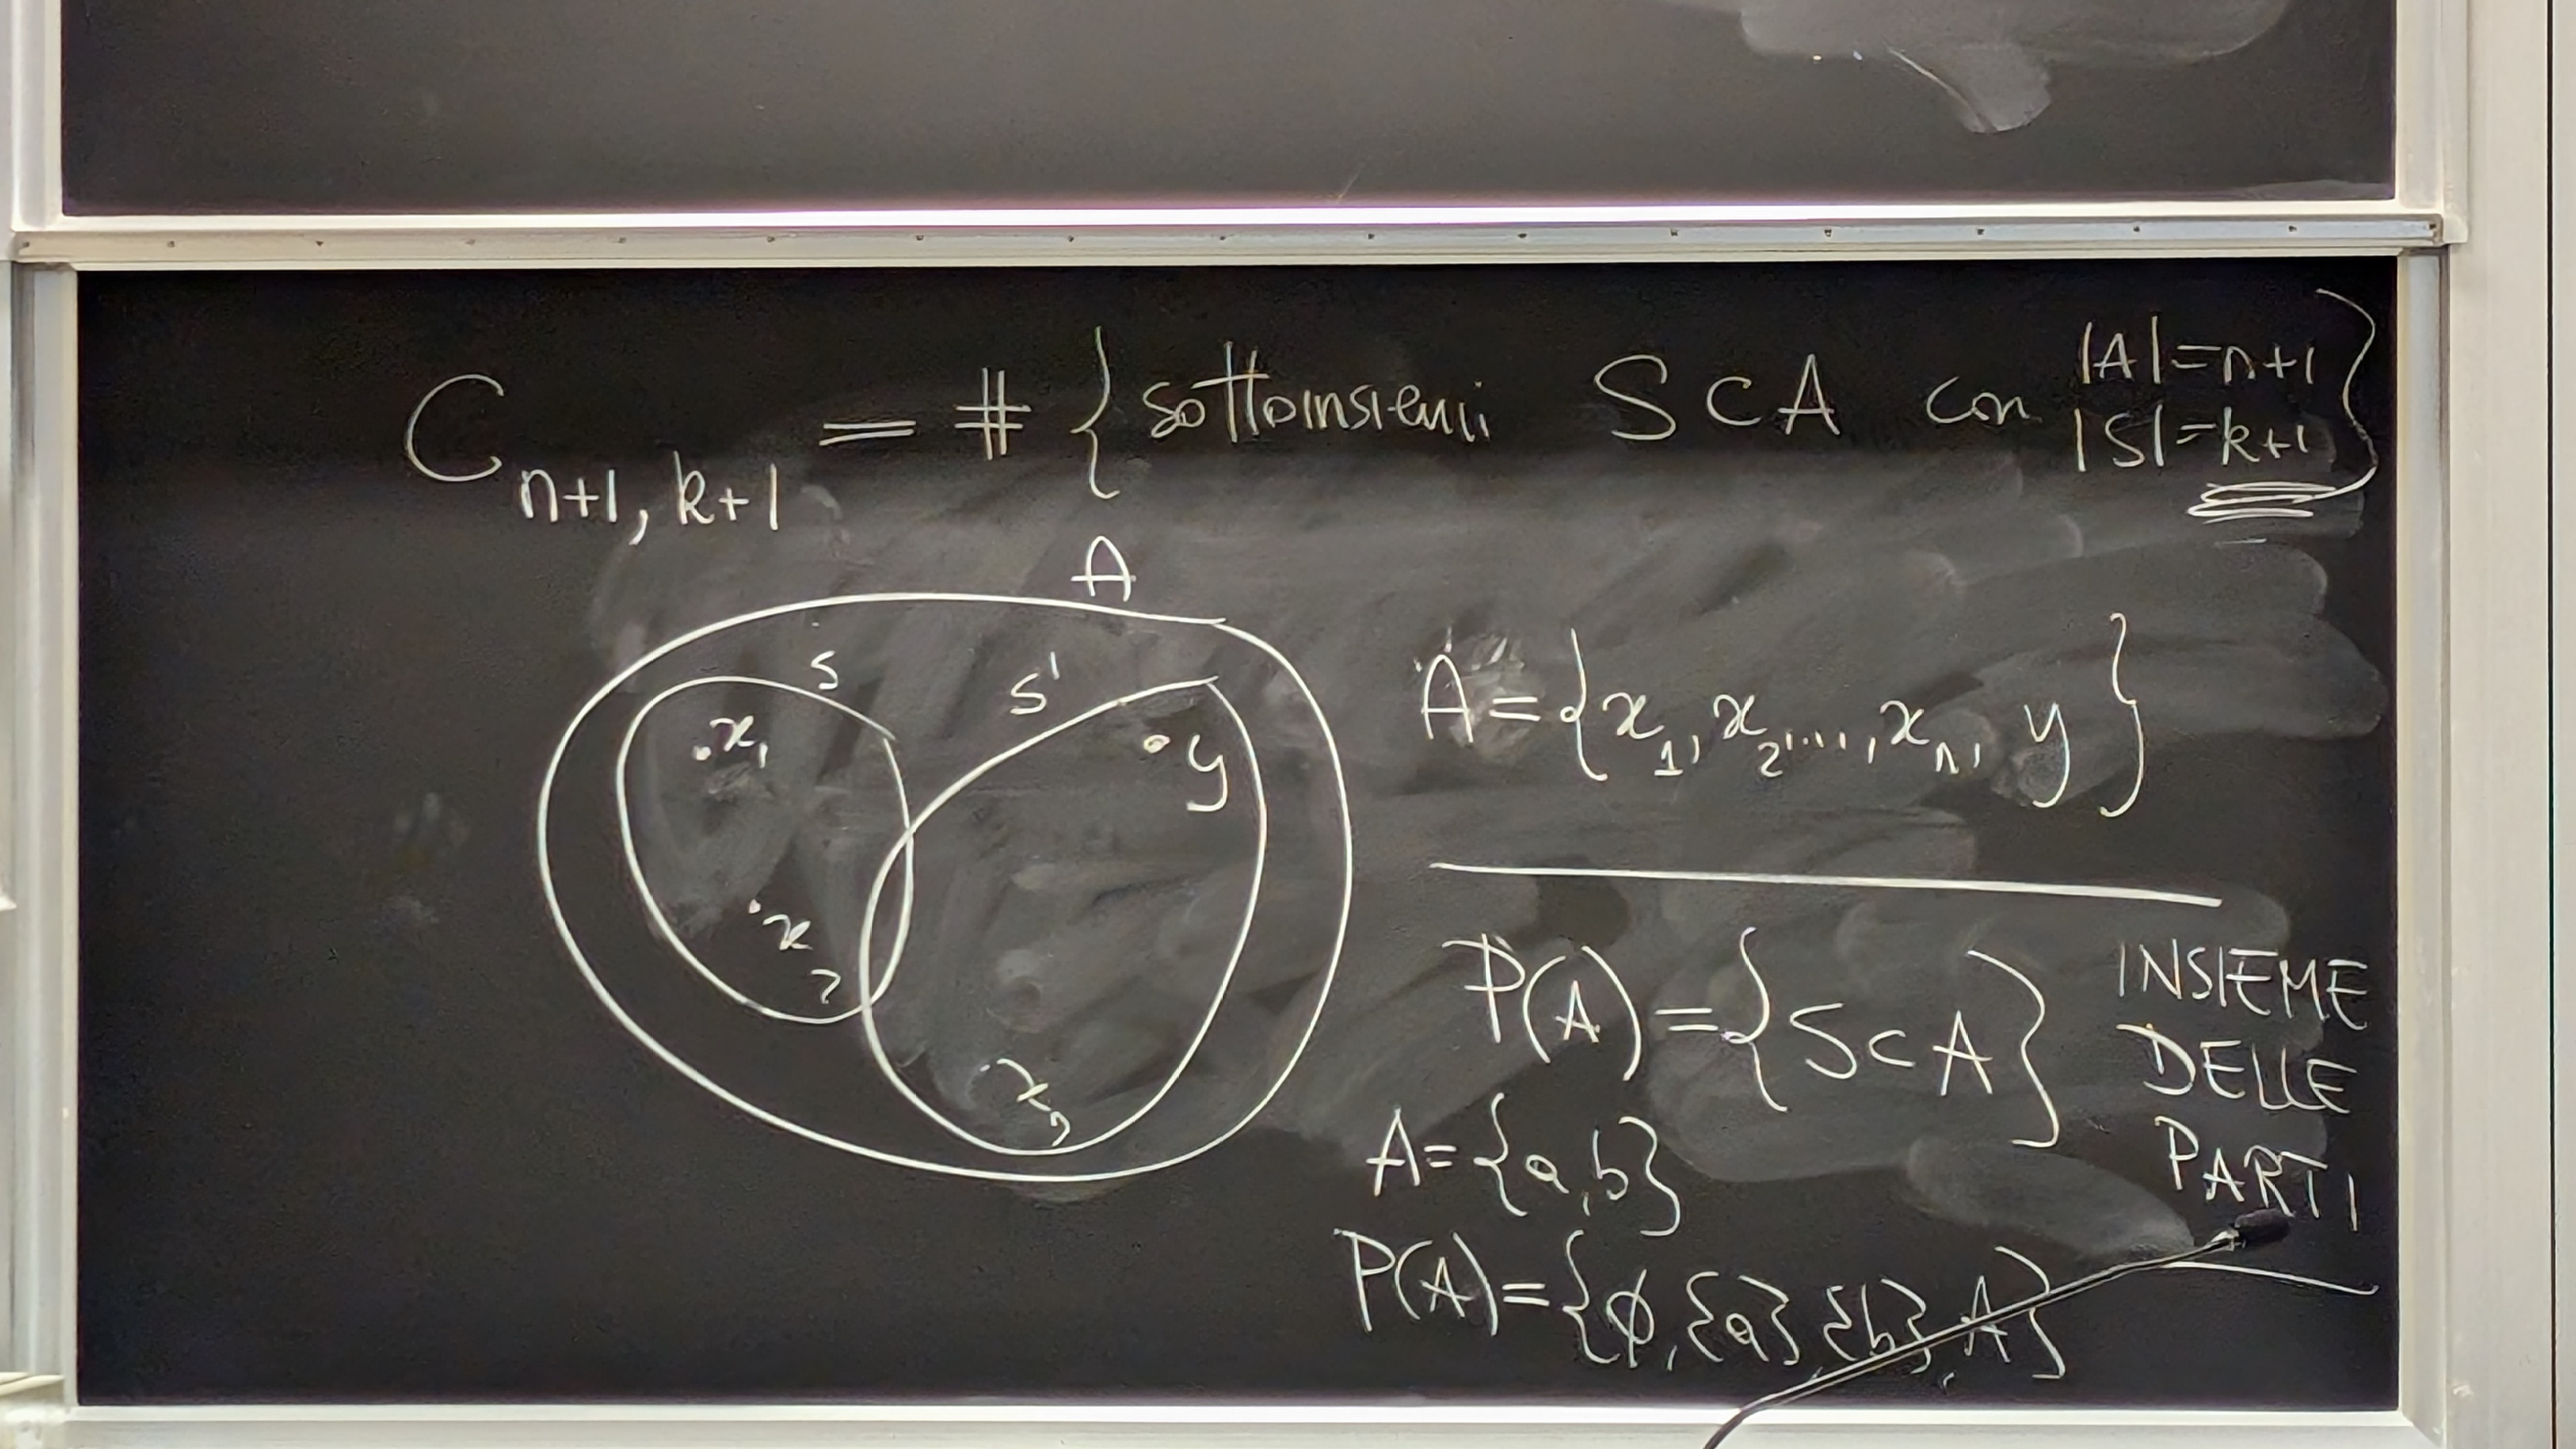 C_{n+1, k+1} = # { sottoinsiemi S ⊂ A con |A|=n+1 |S|=k+1 }
A
S
S'
x_1
y
x_2
A = { x_1, x_2, ..., x_n, y }
P(A) = { S ⊂ A }
INSIEME
DELLE
PARTI
A = {a, b}
P(A) = { ∅, {a} {b}, A }